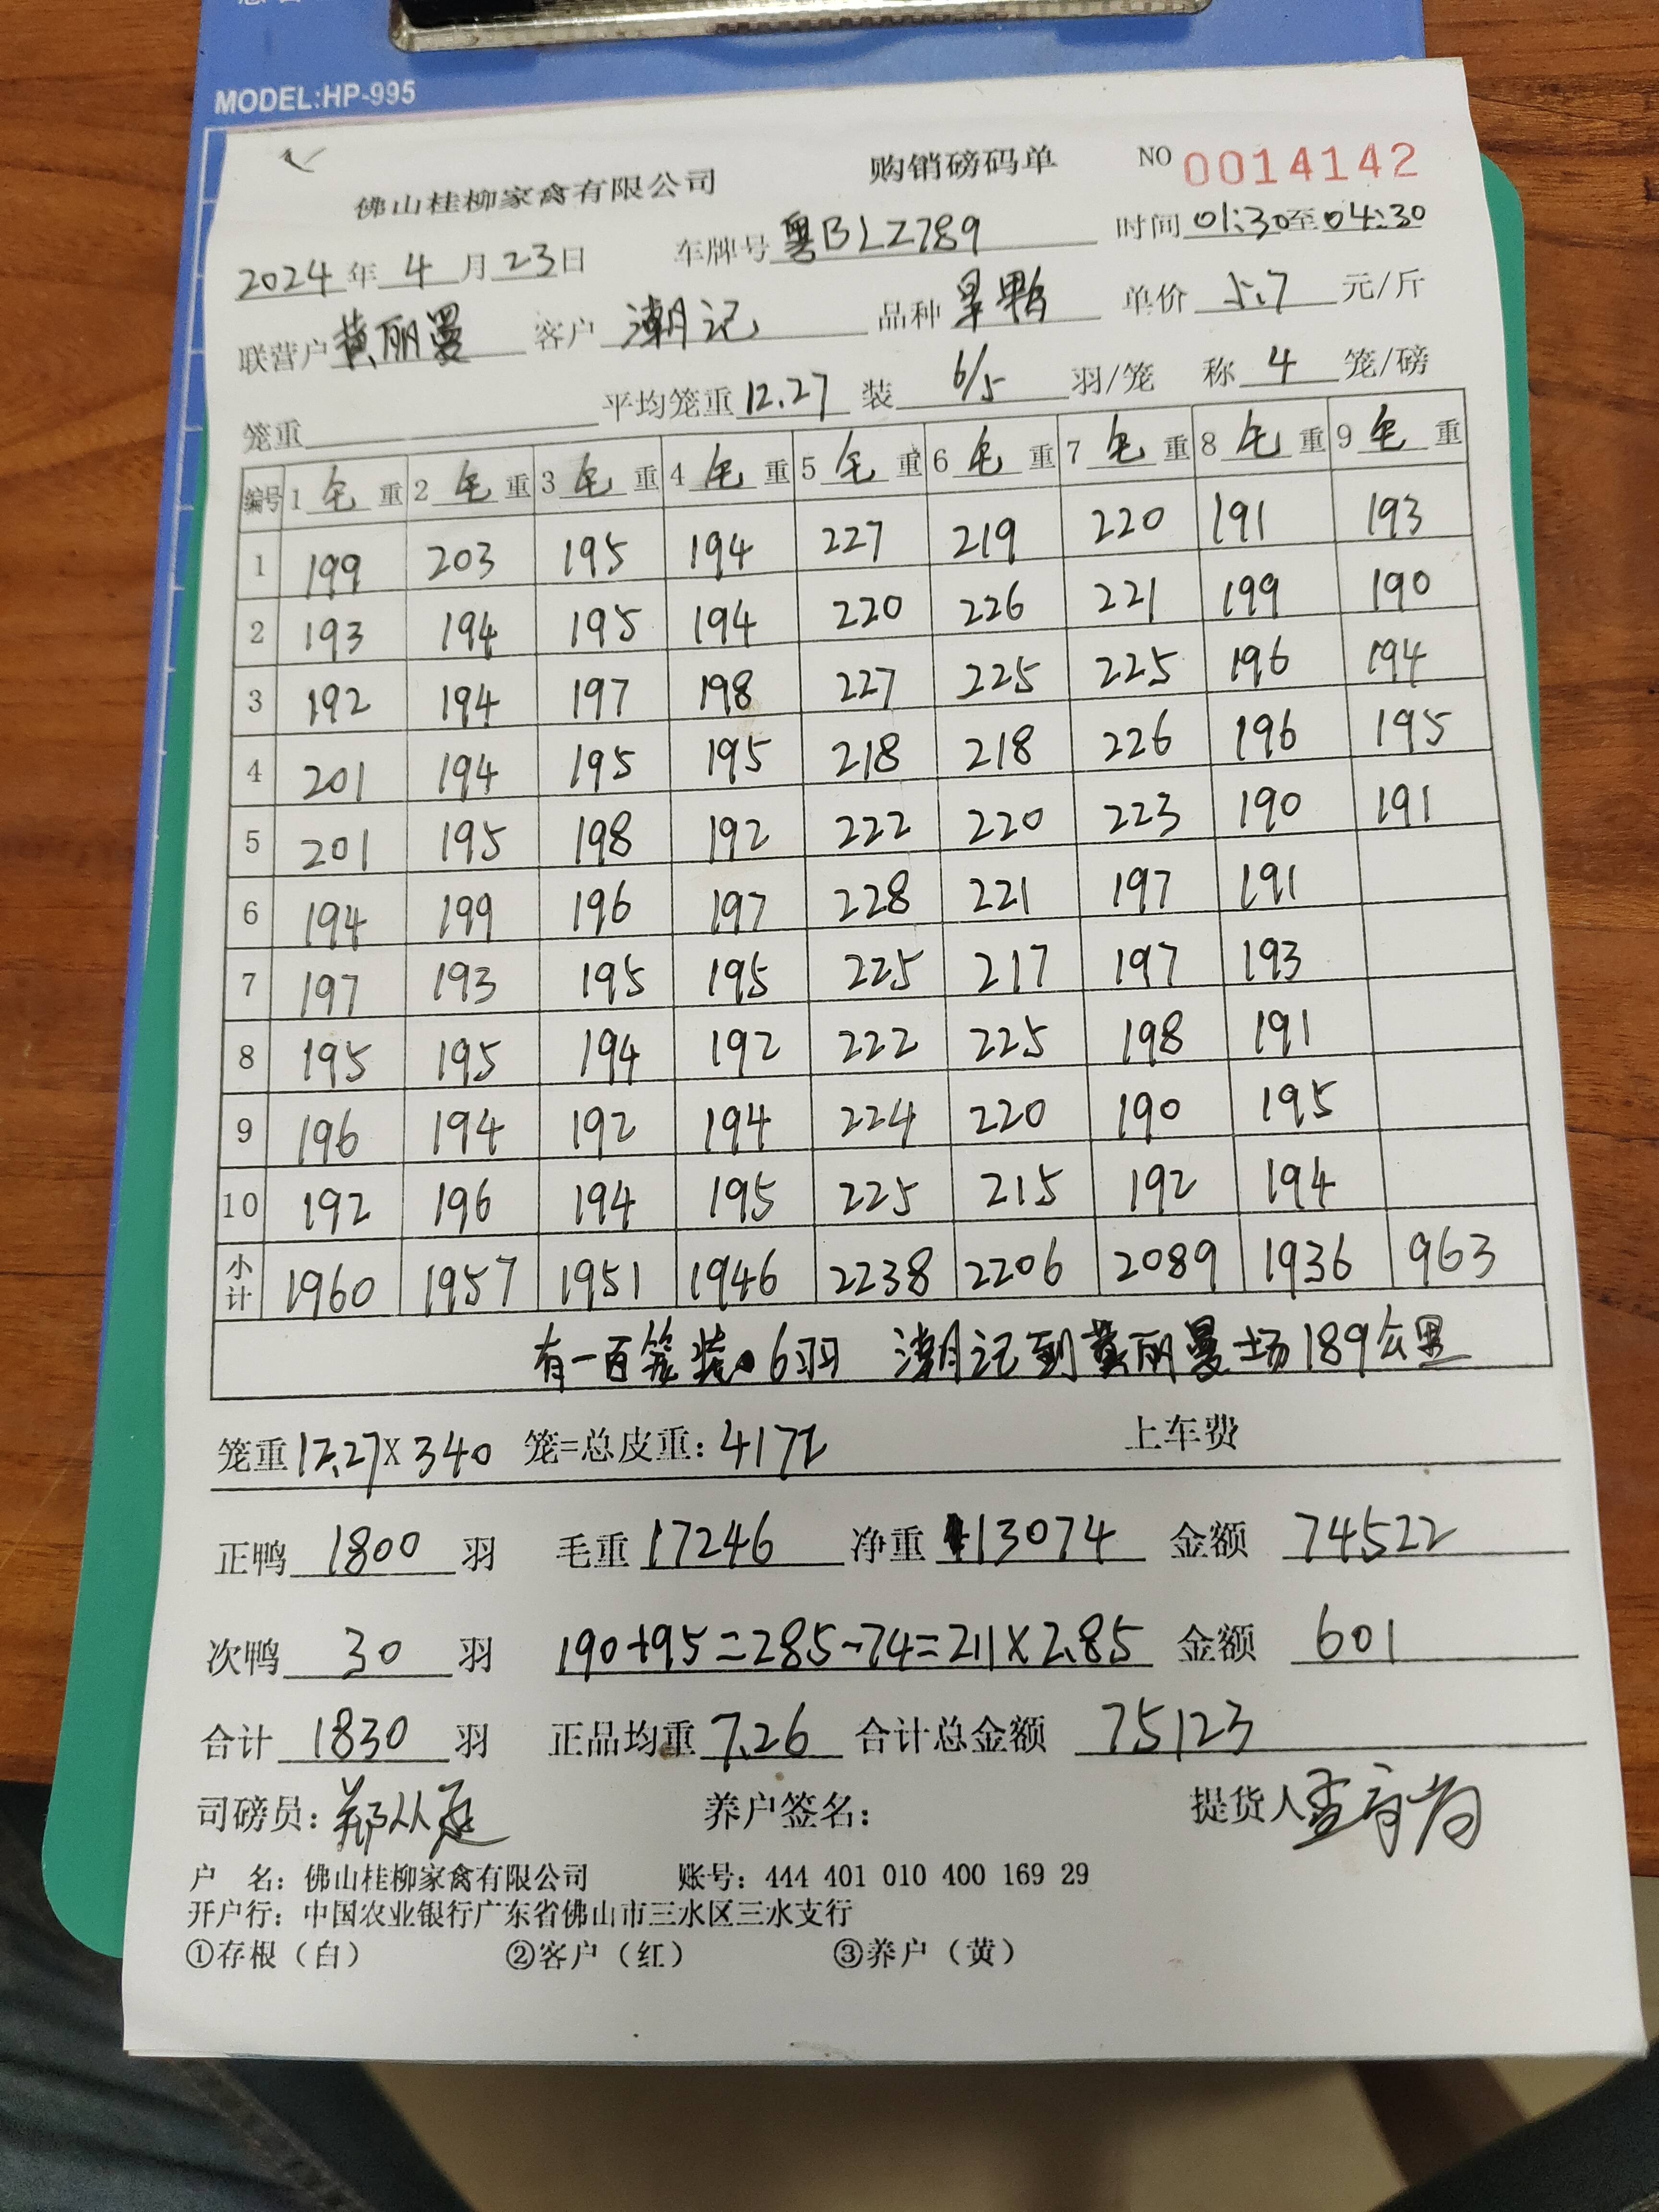 MODEL:HP-995
佛山桂柳家禽有限公司 购销磅码单 NO 0014142
2024年4月23日 车牌号粤BLZ789 时间01:30至04:30
联营户黄丽曼 客户潮记 品种旱鸭 单价5.7元/斤
笼重 平均笼重12.27 装6/5羽/笼 称4笼/磅
编号 1毛重 2毛重 3毛重 4毛重 5毛重 6毛重 7毛重 8毛重 9毛重
1 199 203 195 194 227 219 220 191 193
2 193 194 195 194 220 226 221 199 190
3 192 194 197 198 227 225 225 196 194
4 201 194 195 195 218 218 226 196 195
5 201 195 198 192 222 220 223 190 191
6 194 199 196 197 228 221 197 191
7 197 193 195 195 225 217 197 193
8 195 195 194 192 222 225 198 191
9 196 194 192 194 224 220 190 195
10 192 196 194 195 225 215 192 194
小计 1960 1957 1951 1946 2238 2206 2089 1936 963
有一百笼装6羽 潮记到黄丽曼场189公里
笼重12.27X340 笼=总皮重:4172 上车费
正鸭1800羽 毛重17246 净重13074 金额74522
次鸭30羽 190+95=285-74=211X2.85 金额601
合计1830羽 正品均重7.26 合计总金额75123
司磅员: 养户签名: 提货人
户 名:佛山桂柳家禽有限公司 账号:444 401 010 400 169 29
开户行:中国农业银行广东省佛山市三水区三水支行
①存根(白) ②客户(红) ③养户(黄)